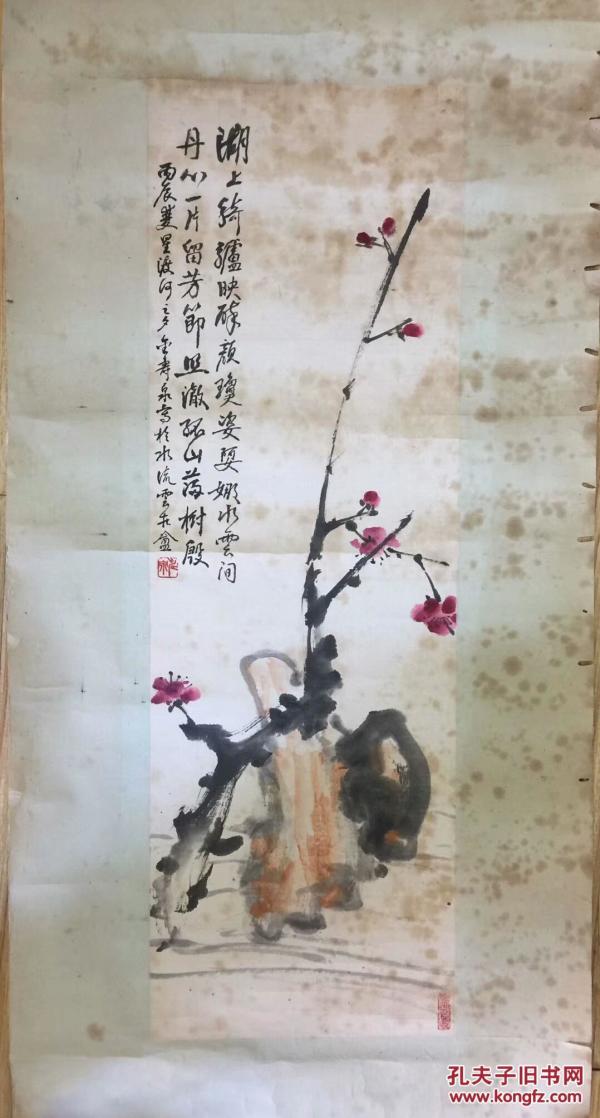 湖上骑驴映酡颜琼姿婴娜水云间
丹心一片留芳節照澈孤山万树殷
丙辰双星渡河之夕金寿泉写於水流云在盦
孔夫子旧书网
www.kongfz.com